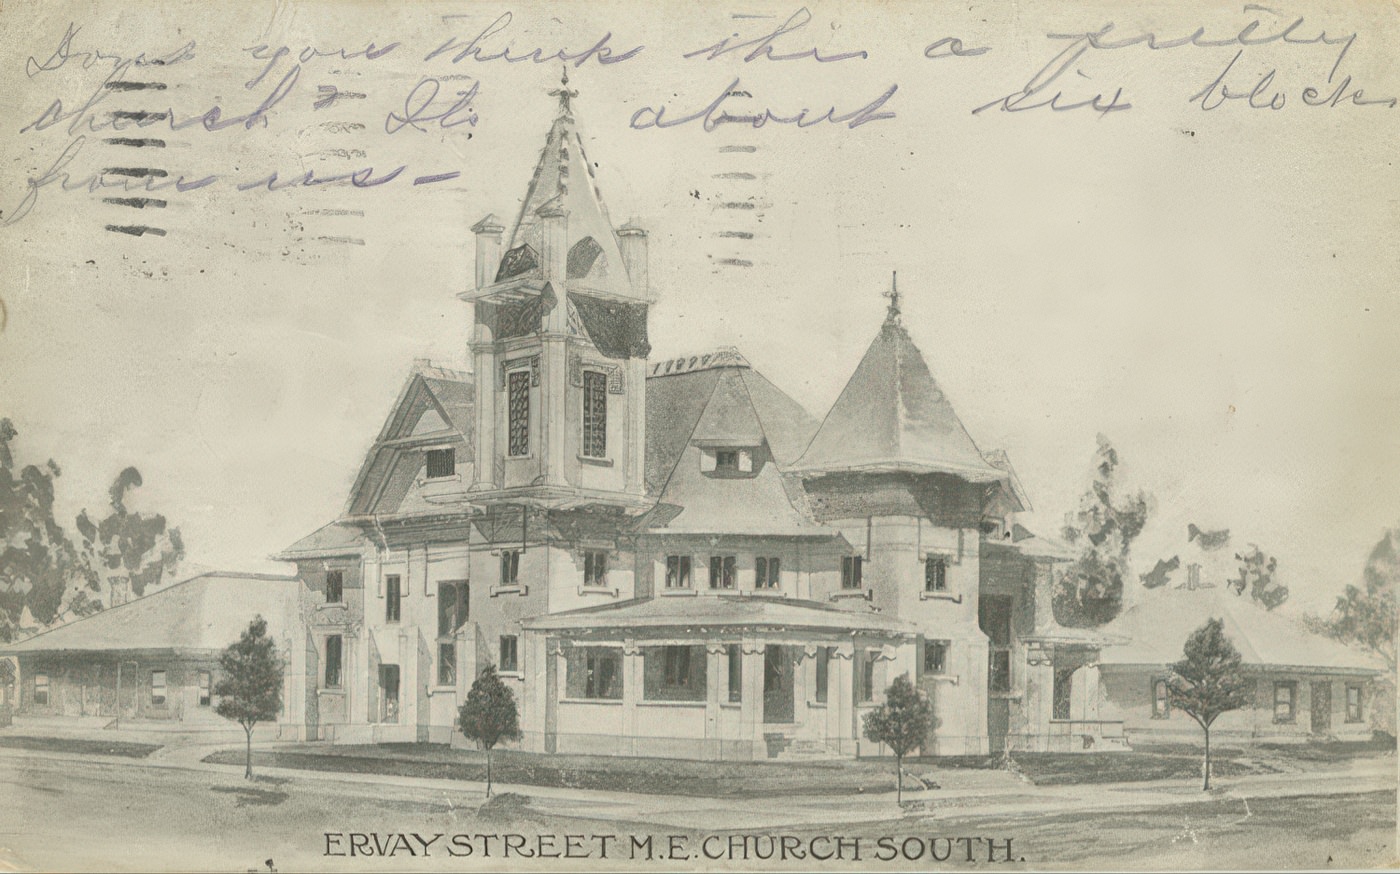 Don't you think this a pretty
church? Its about six blocks
from us-
ERVAY STREET M.E. CHURCH SOUTH.